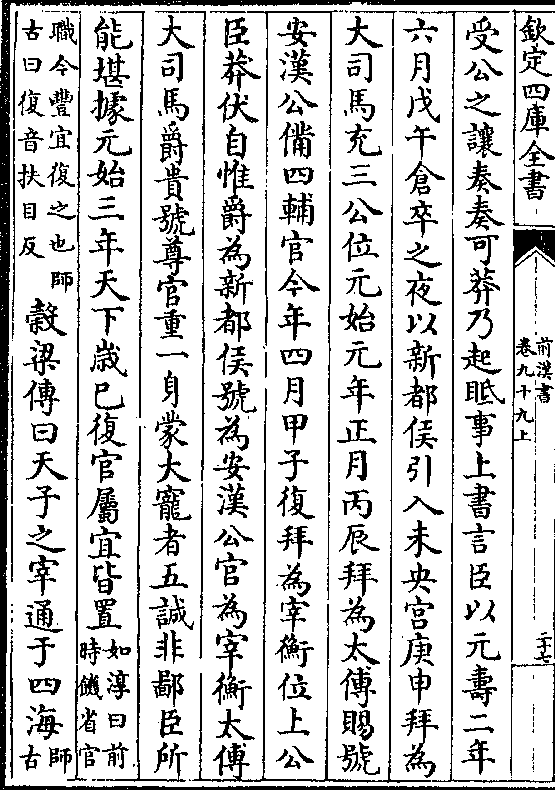 欽定四庫全書
前漢書
卷九十九上
二十七
受公之讓奏奏可莽乃起眡事上書言臣以元壽二年
六月戊午倉卒之夜以新都侯引入未央宫庚申拜為
大司馬充三公位元始元年正月丙辰拜為太傅賜號
安漢公備四輔官今年四月甲子復拜為宰衡位上公
臣莽伏自惟爵為新都侯號為安漢公官為宰衡太傅
大司馬爵貴號尊官重一身蒙大寵者五誠非鄙臣所
能堪據元始三年天下歲已復官屬宜皆置如淳曰前時饑省官
職今豐宜復之也師古曰復音扶目反穀梁傳曰天子之宰通于四海師古